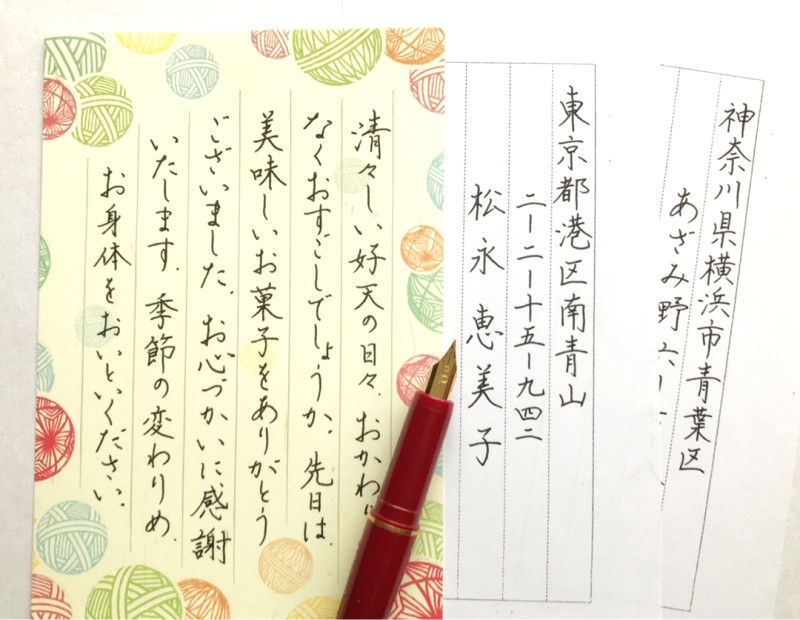 清々しい好天の日々、おかわ
なくおすごしでしょうか。先日は、
美味しいお菓子をありがとう
ございました。お心づかいに感謝
いたします。季節の変わりめ、
お身体をおいといください。
東京都港区南青山
二ー二ー十五ー九四二
松永恵美子
神奈川県横浜市青葉区
あざみ野